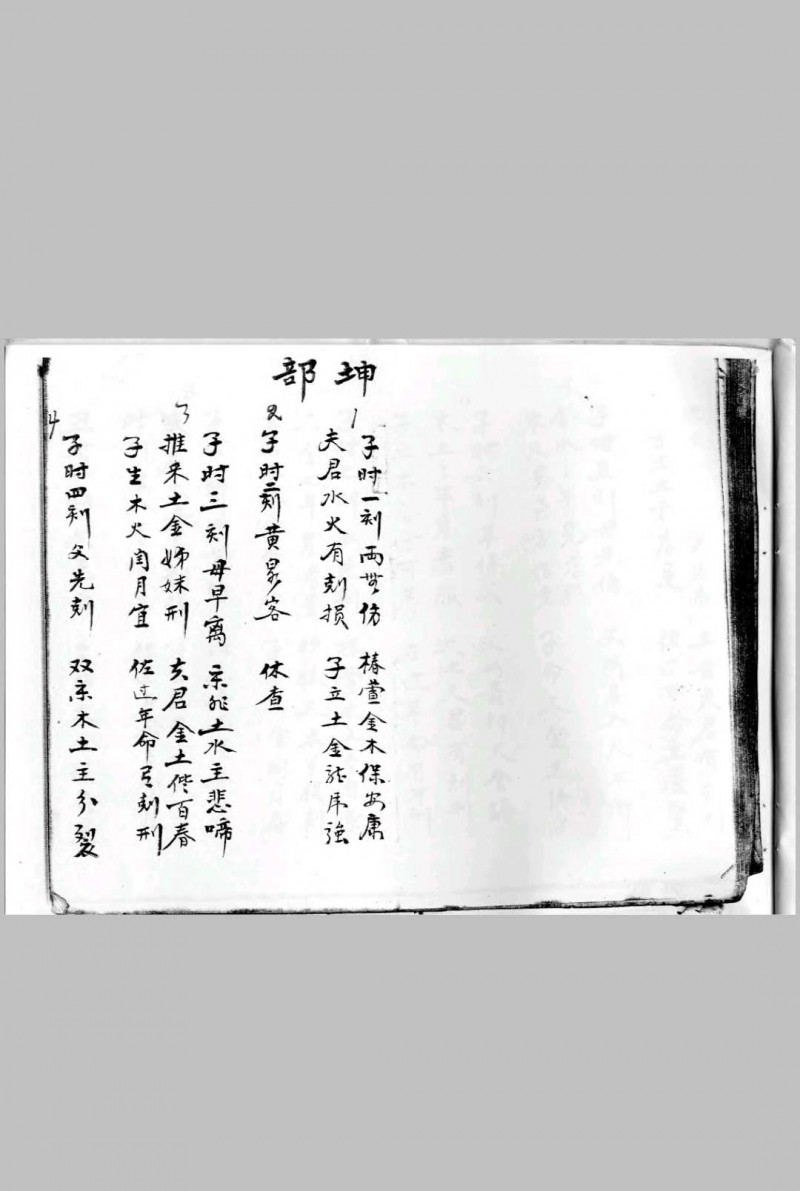 坤部
1
子时一刻两無伤 椿萱金木保安康
夫君水火有刻损 子立土金能成強
2 子时二刻黄泉客 休查
3
子时三刻母早离 亲非土水主悲啼
推来土金姊妹刑 夫君金土偕百春
子生木火闰月宜 年命刻刑
4
子时四刻父先刻 双亲木土主分裂